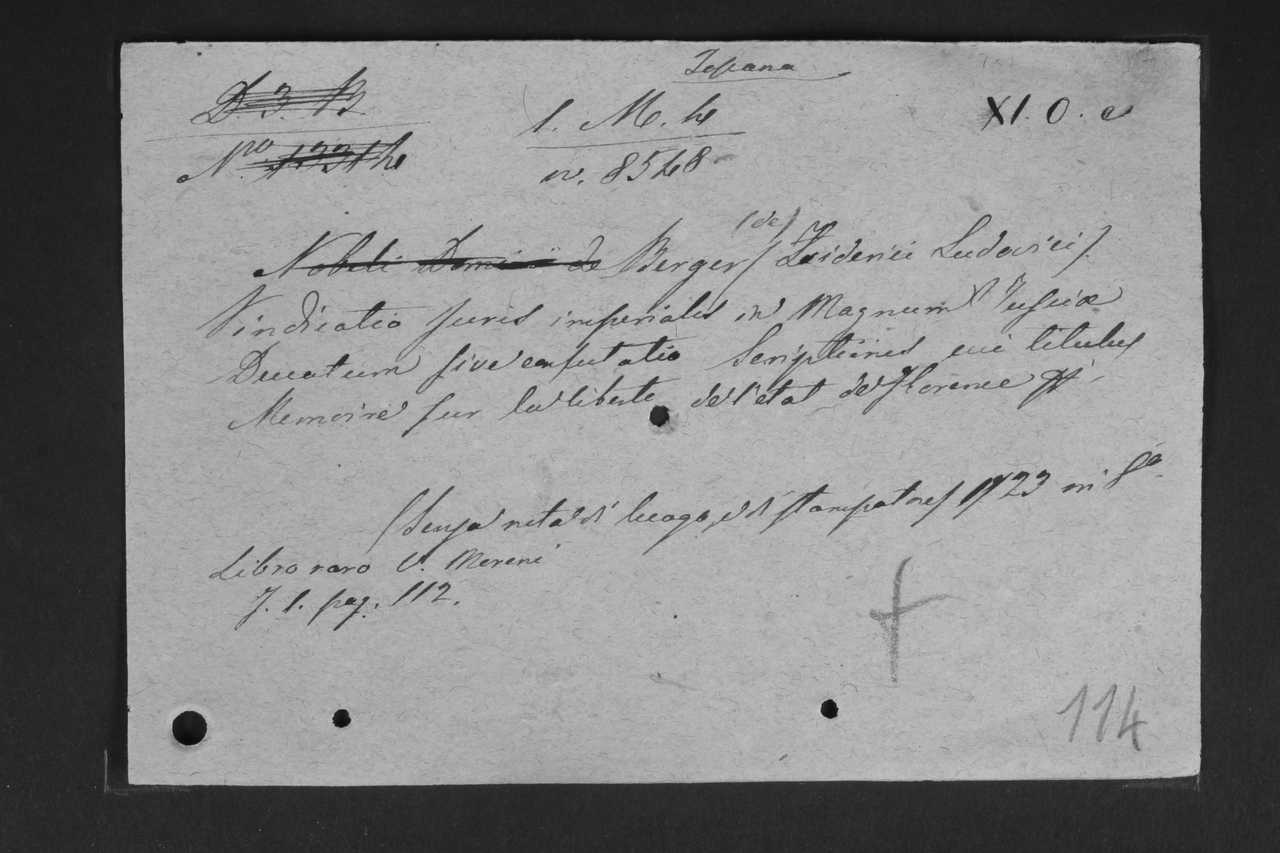 Toscana
D 3. B
1. M. 4
XI. O. e
N.ro 1331 4
n. 8548
Nobili Domini de Berger (de) (Friderici Ludovici).
Vindicatio juris imperialis in Magnum Tusciæ
Ducatum sive confutatio Scriptionis cui titulus
Memoire sur la liberté de l'etat de Florence
(Senza nota di luogo, e di stampatore) 1723 in 8º
Libro raro V. Moreni
T. 1. pag. 112.
114